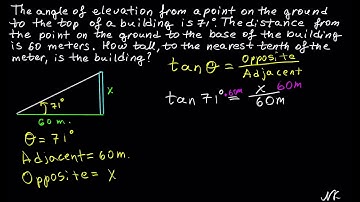 The angle of elevation from a point on the ground
to the top of a building is 71°. The distance from
the point on the ground to the base of the building
is 60 meters. How tall, to the nearest tenth of the
meter, is the building?
tan θ = Opposite / Adjacent
x
71°
60 m.
tan 71° •60m = x 60m / 60m
θ = 71°
Adjacent = 60m.
Opposite = x
NK